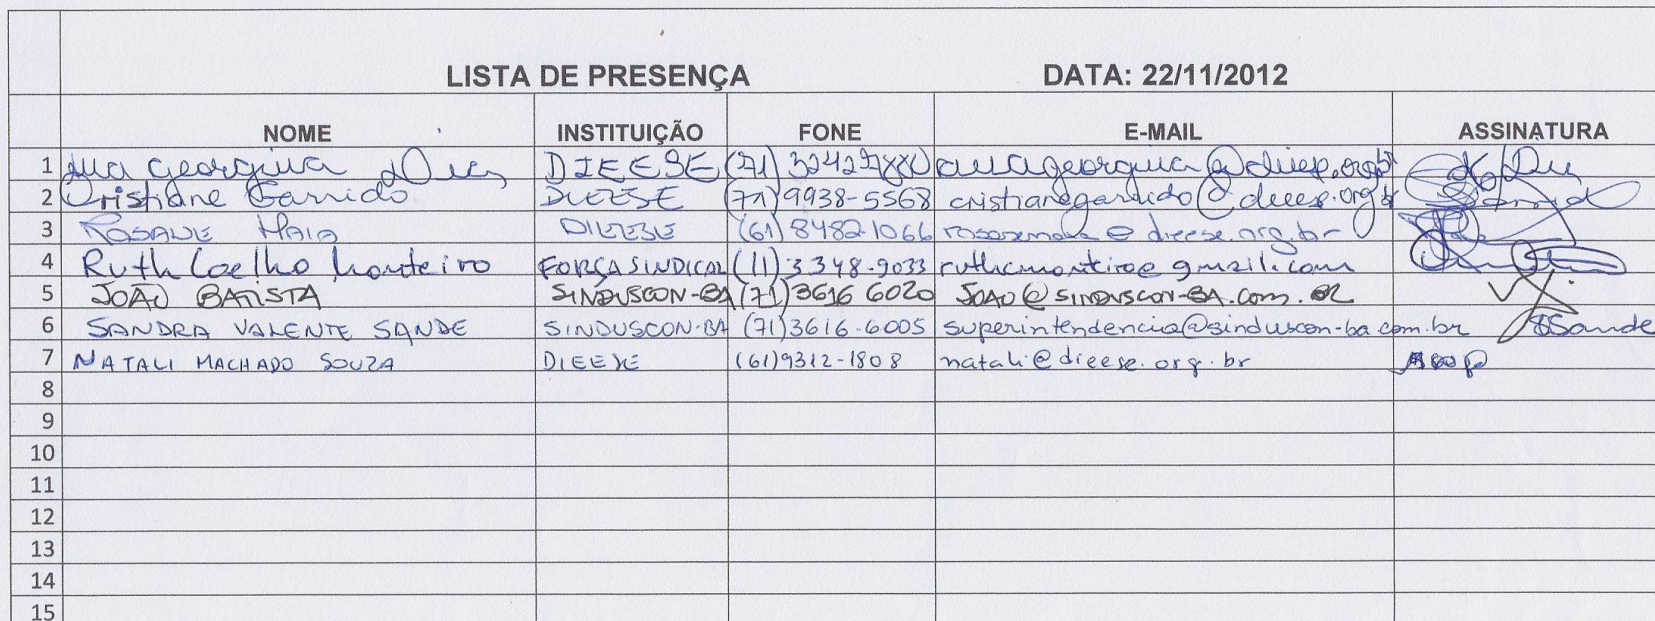 LISTA DE PRESENÇA DATA: 22/11/2012
NOME INSTITUIÇÃO FONE E-MAIL ASSINATURA
1 Ana Georgina Dias DIEESE (71) 32427880 anageorgina@dieese.org.br
2 Cristiane Garrido DIEESE (71) 9938-5568 cristianegarrido@dieese.org.br
3 ROSANE MAIA DIEESE (61) 84821066 rosanemaia@dieese.org.br
4 Ruth Coelho Monteiro FORÇA SINDICAL (11) 3348-9033 ruthcmonteiro@gmail.com
5 JOÃO BATISTA SINDUSCON-BA (71) 3616 6020 JOAO@SINDUSCON-BA.COM.BR
6 SANDRA VALENTE SANDE SINDUSCON-BA (71) 3616-6005 superintendencia@sinduscon-ba.com.br SSande
7 NATALI MACHADO SOUZA DIEESE (61) 9312-1808 natali@dieese.org.br
8
9
10
11
12
13
14
15